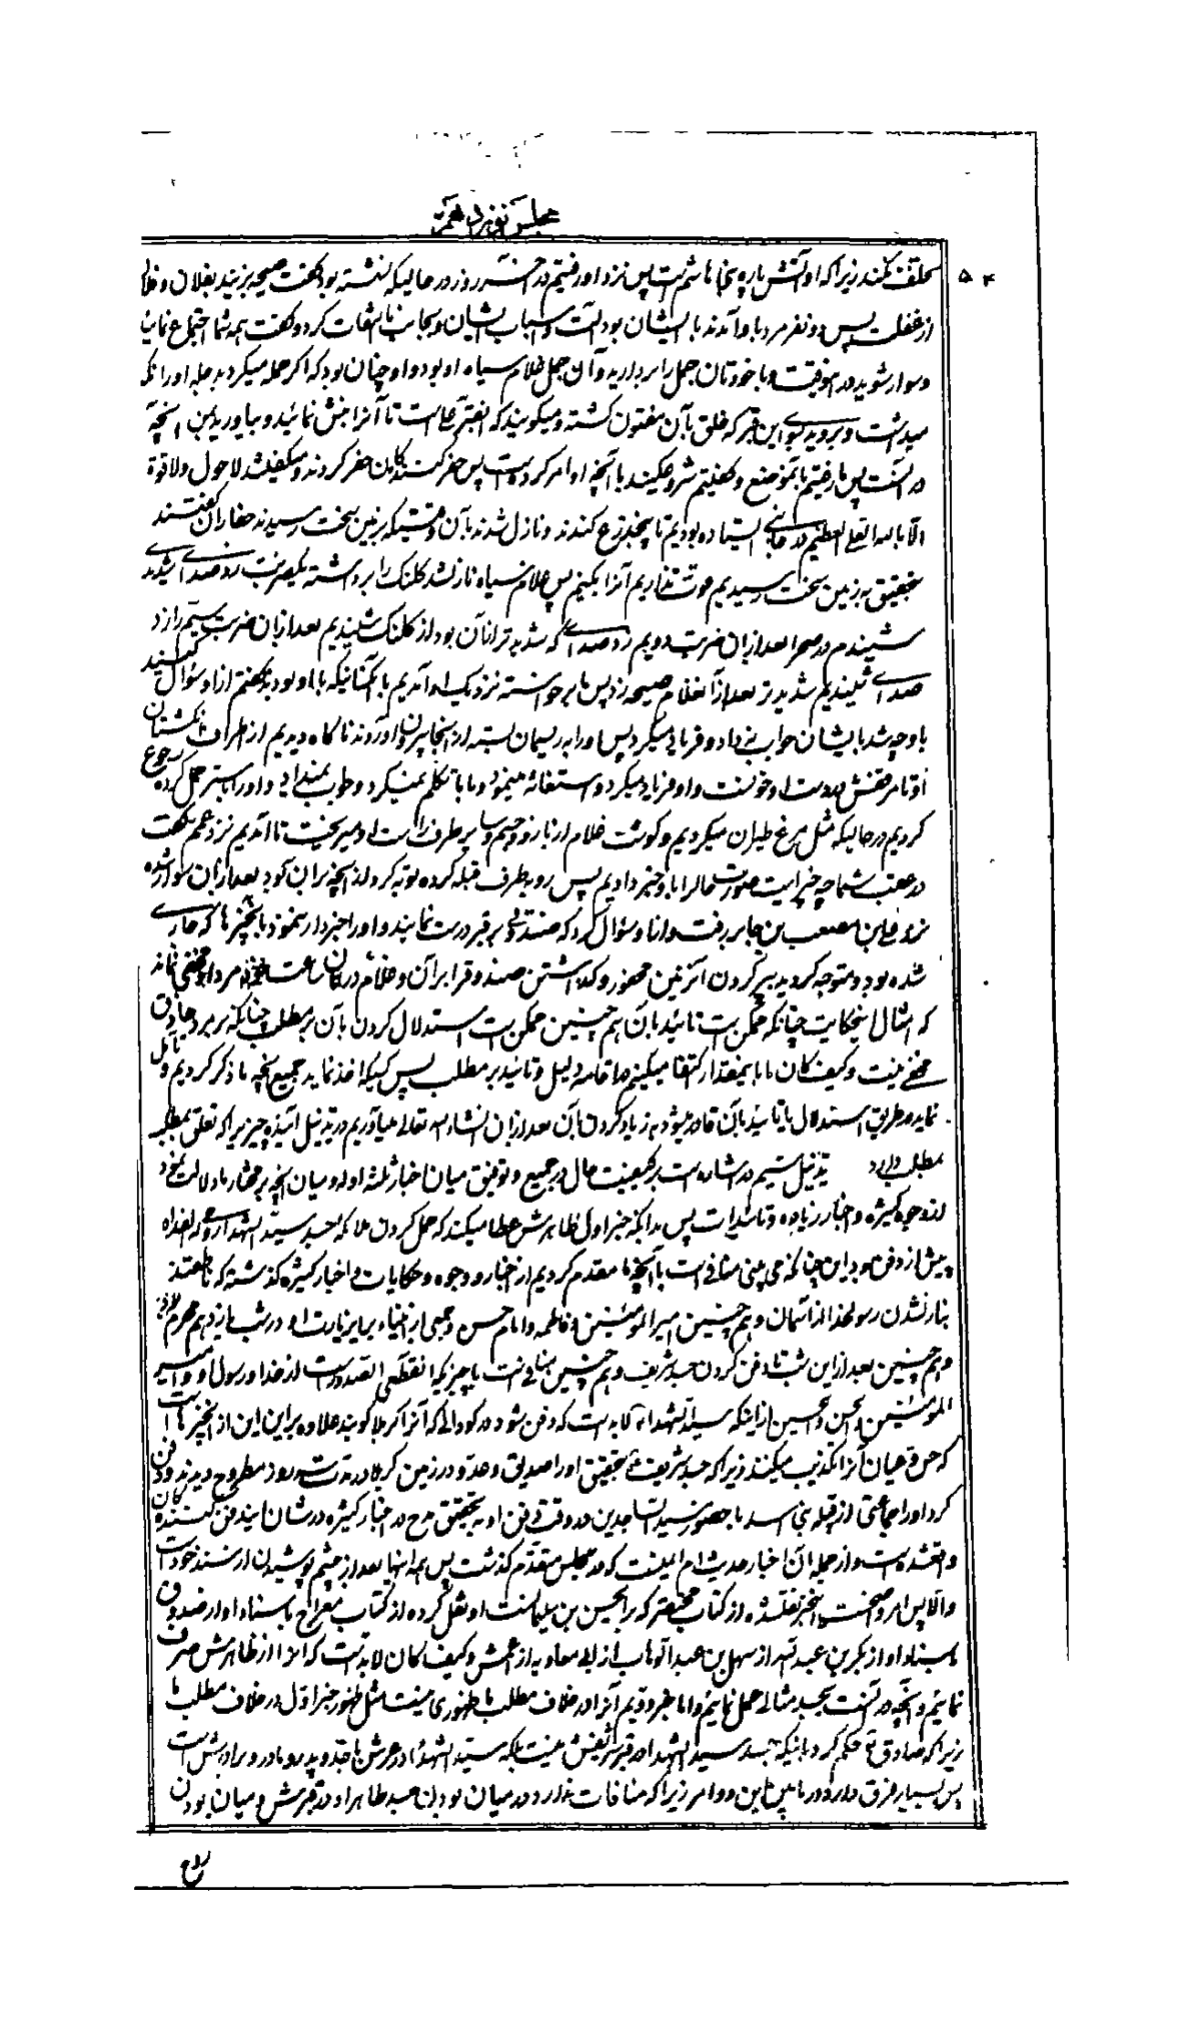 مجلس نوزدهم
۵۴
تخلف نکند زیرا که او آتش پاره بنی هاشم است پس نزد او رفتیم در آخر روز در حالیکه نشسته بود گفت صیحه بزنید بفلان و فلان
از غفلت پس دو نفر مرد باو آمدند با ایشان بود آلت و اسباب ایشان و بجانب ما التفات کرد و گفت همه شما اجتماع نمائید
و سوار شوید در هموقت و با خودتان جمل را بردارید و آن جمل غلام سیاه او بود و او چنان بود که اگر حمله میکرد بدجله او را نگه
میداشت و بروید بسوی این قبر که خلق بآن مفتون گشته و میگویند که آن قبر علی است تا آنرا نبش نمائید و بیاورید بمن آنچه
در آنست پس ما رفتیم بآنموضع و گفتیم شروع کنید بآنچه او امر کرده است پس حفر کنندگان حفر کردند و میگفتند لا حول و لا قوة
الا بالله العلی العظیم در جانبی ایستاده بودیم تا پنج ذرع کندند و نازل شدند بآن وقتیکه بزمین سخت رسیدند حفاران گفتند
بتحقیق به زمین سخت رسیدیم قوت نداریم آنرا بکنیم پس غلام سیاه نازل شد کلنک را برداشته یک ضربت زد صدای شدید
شنیدم در صحرا بعد از آن ضربت دویم زد صدای که شدید تر از آن بود از کلنک شنیدیم بعد از آن ضربت سیم را زد
صدای شنیدیم شدید تر بعد از آن غلام صیحه زد پس ما برخواسته نزدیک او آمدیم با کسانیکه با او بودند گفتم از او سؤال کنید
باو چه شد بایشان جواب نداد و فریاد میکرد پس او را به ریسمان بسته از آنجا بیرون آوردند ناگاه دیدیم از اطراف انگشتان
او تا مرفقش بدست او خونست و او فریاد میکرد و استغاثه مینمود و با ما تکلم نمیکرد و جواب نمیداد و او را باستر حمل کرده رجوع
کردیم در حالیکه مثل مرغ طیران میکردیم و گوشت غلام از بازو و جسم و سایر طرف راست او میریخت تا آمدیم نزد عمم گفت
در عقب شما چه خبر است صورت حال را باو خبر دادیم پس رو بطرف قبله کرده توبه کرد از آنچه بر آن بود بعد از آن سوار شده
نزد علی بن مصعب بن جابر رفت و از او سؤال کرد که صندوقی بر قبر درست نمایند و او را خبردار ننمود بآن چیزها که جاری
شده بود و متوجه گردید به پر کردن آن زمین محفور و گذاشتن صندوق را بر آن و غلام در همان ساعت مرد و مخفی نماند
که امثال این حکایت چنانکه ممکن است تأیید بآن هم چنین ممکن است استدلال کردن بآن بر مطلب چنانکه بر مرد حاذق
مخفی نیست و کیف کان ما باینمقدار اکتفا میکنیم در اقامه دلیل و تأیید بر مطلب پس کسیکه اخذ نماید جمیع آنچه ما ذکر کردیم و تأمل
نماید در طریق استدلال یا تأیید بآن قادر میشود به زیاد کردن بآن بعد از آن انشاء الله تعالی میآوریم در تذییل آینده چیزیرا که تعلق بمطلب
مطلب دارد تذییل سیم در اشاره است بر کیفیت حال در جمیع و توفیق میان اخبار ثلثه اول و میان آنچه بر مختار ما دلالت نمود
از وجوه کثیره و اخبار زیاده و تائیدات پس بدانکه خبر اول ظاهرش عطا میکند که حمل کردن ملائکه جسد سید الشهدا روحی له الفداء
پیش از دفن بود و این چنانکه می بینی منافی است بآنچه ما مقدم کردیم از اخبار و وجوه و حکایات و اخبار کثیره گذشته که ناطقند
بنازل شدن رسولخدا از آسمان و هم چنین امیر المؤمنین و فاطمه و امام حسن و جمعی از انبیاء برای زیارت او در شب یازدهم محرم
و هم چنین بعد از این شب تا دفن کردن جسد شریف و هم چنین منافی است با چیزیکه قطعی الصدور است از خدا و رسول او و امیر
المؤمنین و الحسن و الحسین از اینکه سید الشهداء لا بد است که دفن شود در گودالی که آنرا کربلا گویند علاوه بر این این از آنچیزها است
که حس و عیان آنرا تکذیب میکنند زیرا که جسد شریف بتحقیق او را صدیق و عدو در زمین کربلا در مدت سه روز مطروح دیدند و دفن
کرد او را جماعتی از قبیله بنی اسد با حضور سید الساجدین در وقت دفن او به تحقیق مدح در اخبار کثیره در شان این دفن کنندگان
واقعشده است و از جمله آن اخبار حدیث ام ایمنست که در مجلس مقدم گذشت پس همه اینها بعد از چشم پوشیدن از سند خود است
و الا پس امر واضحست این خبر نقلشده از کتاب مختصر که برای حسن بن سلیمانست او نقل کرده از کتاب معراج باسناد او از صدوق
باسناد او از بکر بن عبد الله از سهل بن عبد الوهاب از ابی معاویه از اعمش و کیف کان لابد است که آنرا از ظاهرش صرف
نمائیم و آنچه در آنست بجسد مثالی حمل نمائیم و اما خبر دویم آنرا در خلاف مطلب ما ظهوری نیست مثل ظهور خبر اول در خلاف مطلب ما
زیرا که صادق ع حکم کرد باینکه جسد سید الشهدا در قبر شریفش نیست بلکه سید الشهداء در عرش با جد و پدر و مادر و برادرش است
پس بسیار فرق دارد در مابین این دو امر زیرا که منافات ندارد در میان بودن جسد طاهر او در قبرش و میان بودن
روح